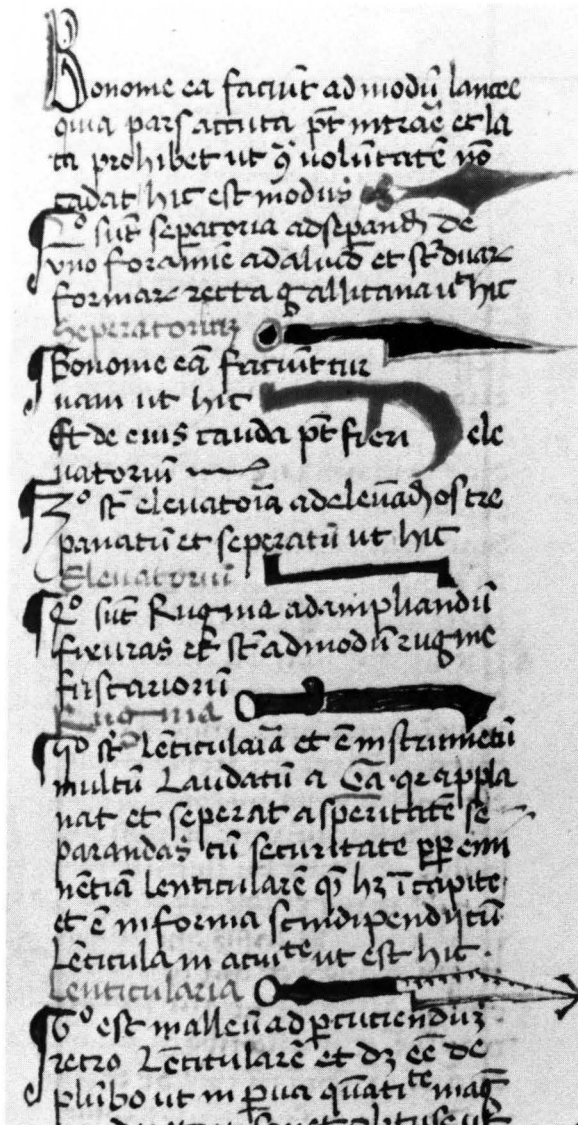 Bonome ea faciūt ad modū lancee
quia pars accuta pt intrare et la
ta prohibet ut voluntatē nō
cadat hic est modus
2º sūt sepatoria ad sepandū de
vno foramine ad aliud et st duar
formar recta gallicana ut hic
Seperatorium
Bononie eā faciūt cur
uam ut hic
Et de eius cauda pt fieri ele
uatoriū
3º st eleuatoria ad eleuādū os tre
panatū et seperatū ut hic
Eleuatoriū
4º sūt Rugine ad ampliandū
fixuras et st ad modū rugine
Rugina
st lēticularia et ē instrumetū
multū Laudatū a Ga. qr appla
nat et seperat asperitatē se
parandas cū securitate pp emi
nētiā lenticularē hz ī capite
et ē in forma
Lēticula in ut est hic
Lenticularia
6º est malleū ad pcutiendū
retro Lēticularē et dz eē de
plūbo ut in pua quātite mag